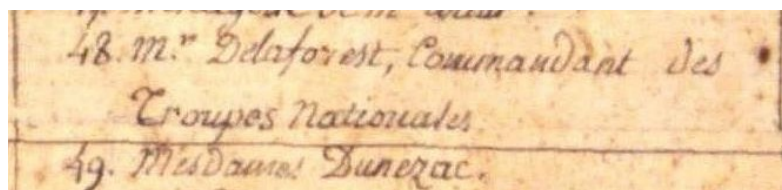 48. Mr. Delaforest, Commandant des
Troupes Nationales
49. Mesdames Dunezac.